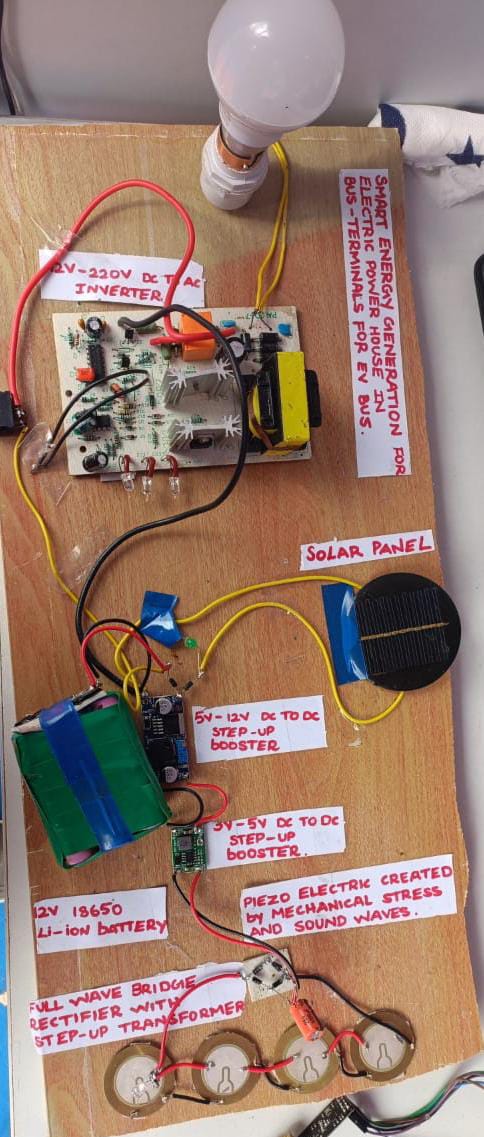 SMART ENERGY GENERATION FOR
ELECTRIC POWER HOUSE IN
BUS-TERMINALS FOR EV BUS.
12V-220V DC TO AC
INVERTER.
SOLAR PANEL
5V-12V DC TO DC
STEP-UP
BOOSTER
3V-5V DC TO DC
STEP-UP
BOOSTER.
12V 18650
Li-ion BATTERY
PIEZO ELECTRIC CREATED
by MECHANICAL STRESS
AND SOUND WAVES.
FULL WAVE BRIDGE
RECTIFIER WITH
STEP-UP TRANSFORMER